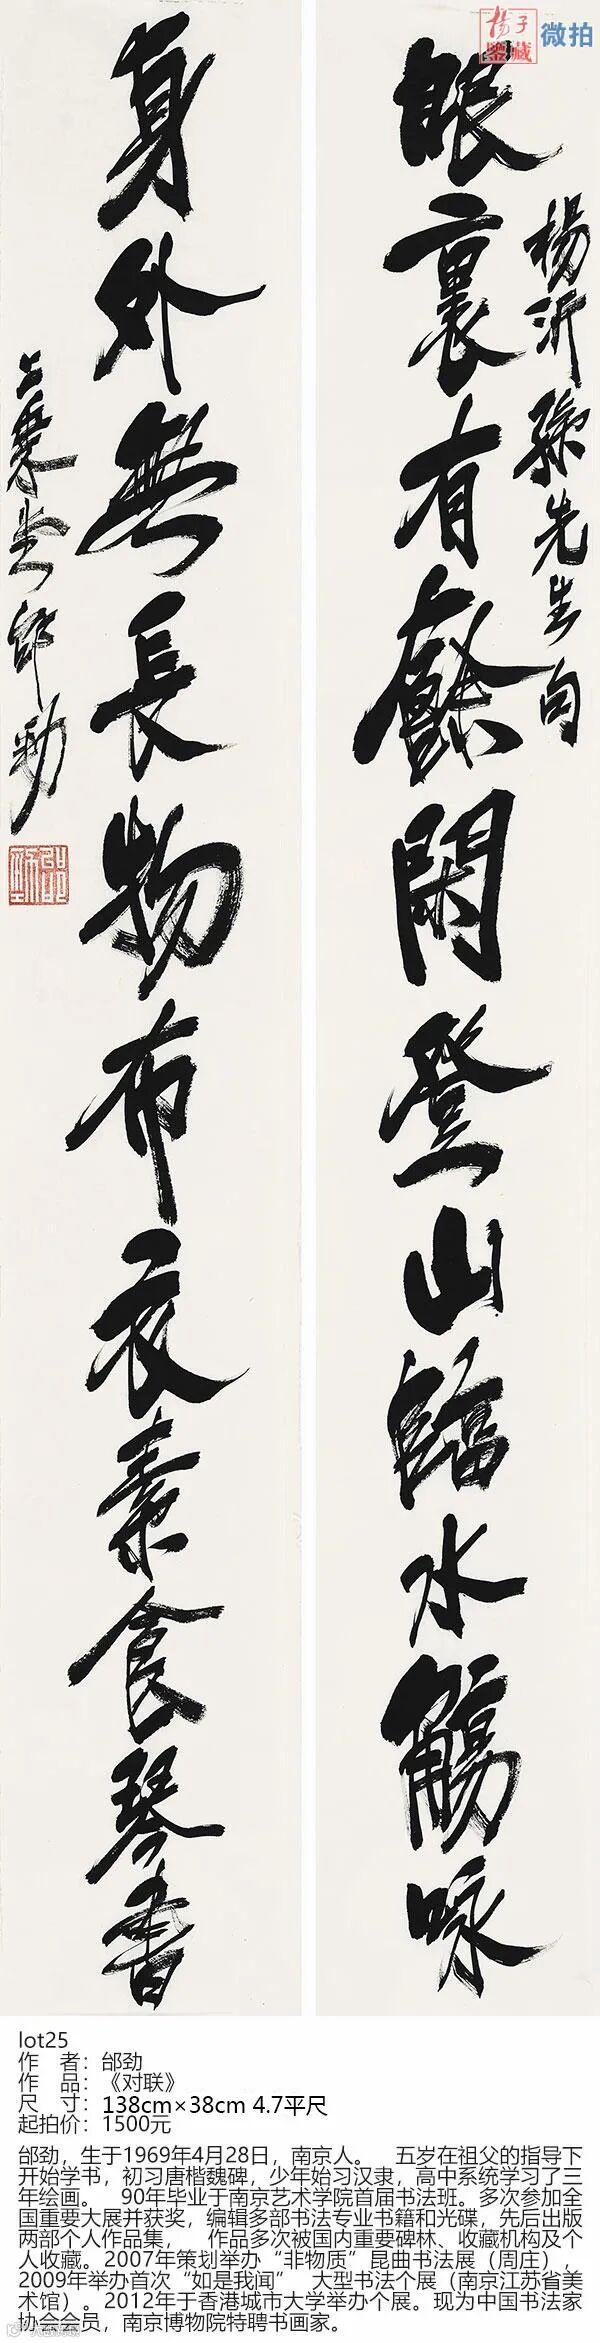 楊子
鑒藏
微拍
眼裏有餘閑登山臨水觴咏
楊沂孫先生句
身外無長物布衣素食琴書
邰勁
lot25
作 者：邰劲
作 品：《对联》
尺 寸：138cm×38cm 4.7平尺
起拍价：1500元
邰劲，生于1969年4月28日，南京人。 五岁在祖父的指导下
开始学书，初习唐楷魏碑，少年始习汉隶，高中系统学习了三
年绘画。 90年毕业于南京艺术学院首届书法班。多次参加全
国重要大展并获奖，编辑多部书法专业书籍和光碟，先后出版
两部个人作品集， 作品多次被国内重要碑林、收藏机构及个
人收藏。2007年策划举办“非物质”昆曲书法展（周庄），
2009年举办首次“如是我闻” 大型书法个展（南京江苏省美
术馆）。2012年于香港城市大学举办个展。现为中国书法家
协会会员，南京博物院特聘书画家。